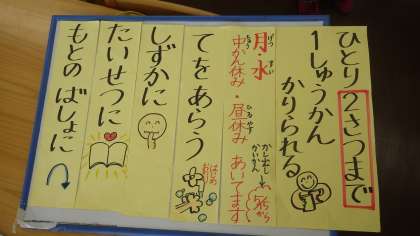 ひとり2さつまで
1しゅうかん
かりられる
月・水
げつ
すい
中かん休み・昼休み
ひるやす
あいてます
5/15から
てをあらう
しずかに
たいせつに
もとのばしょに